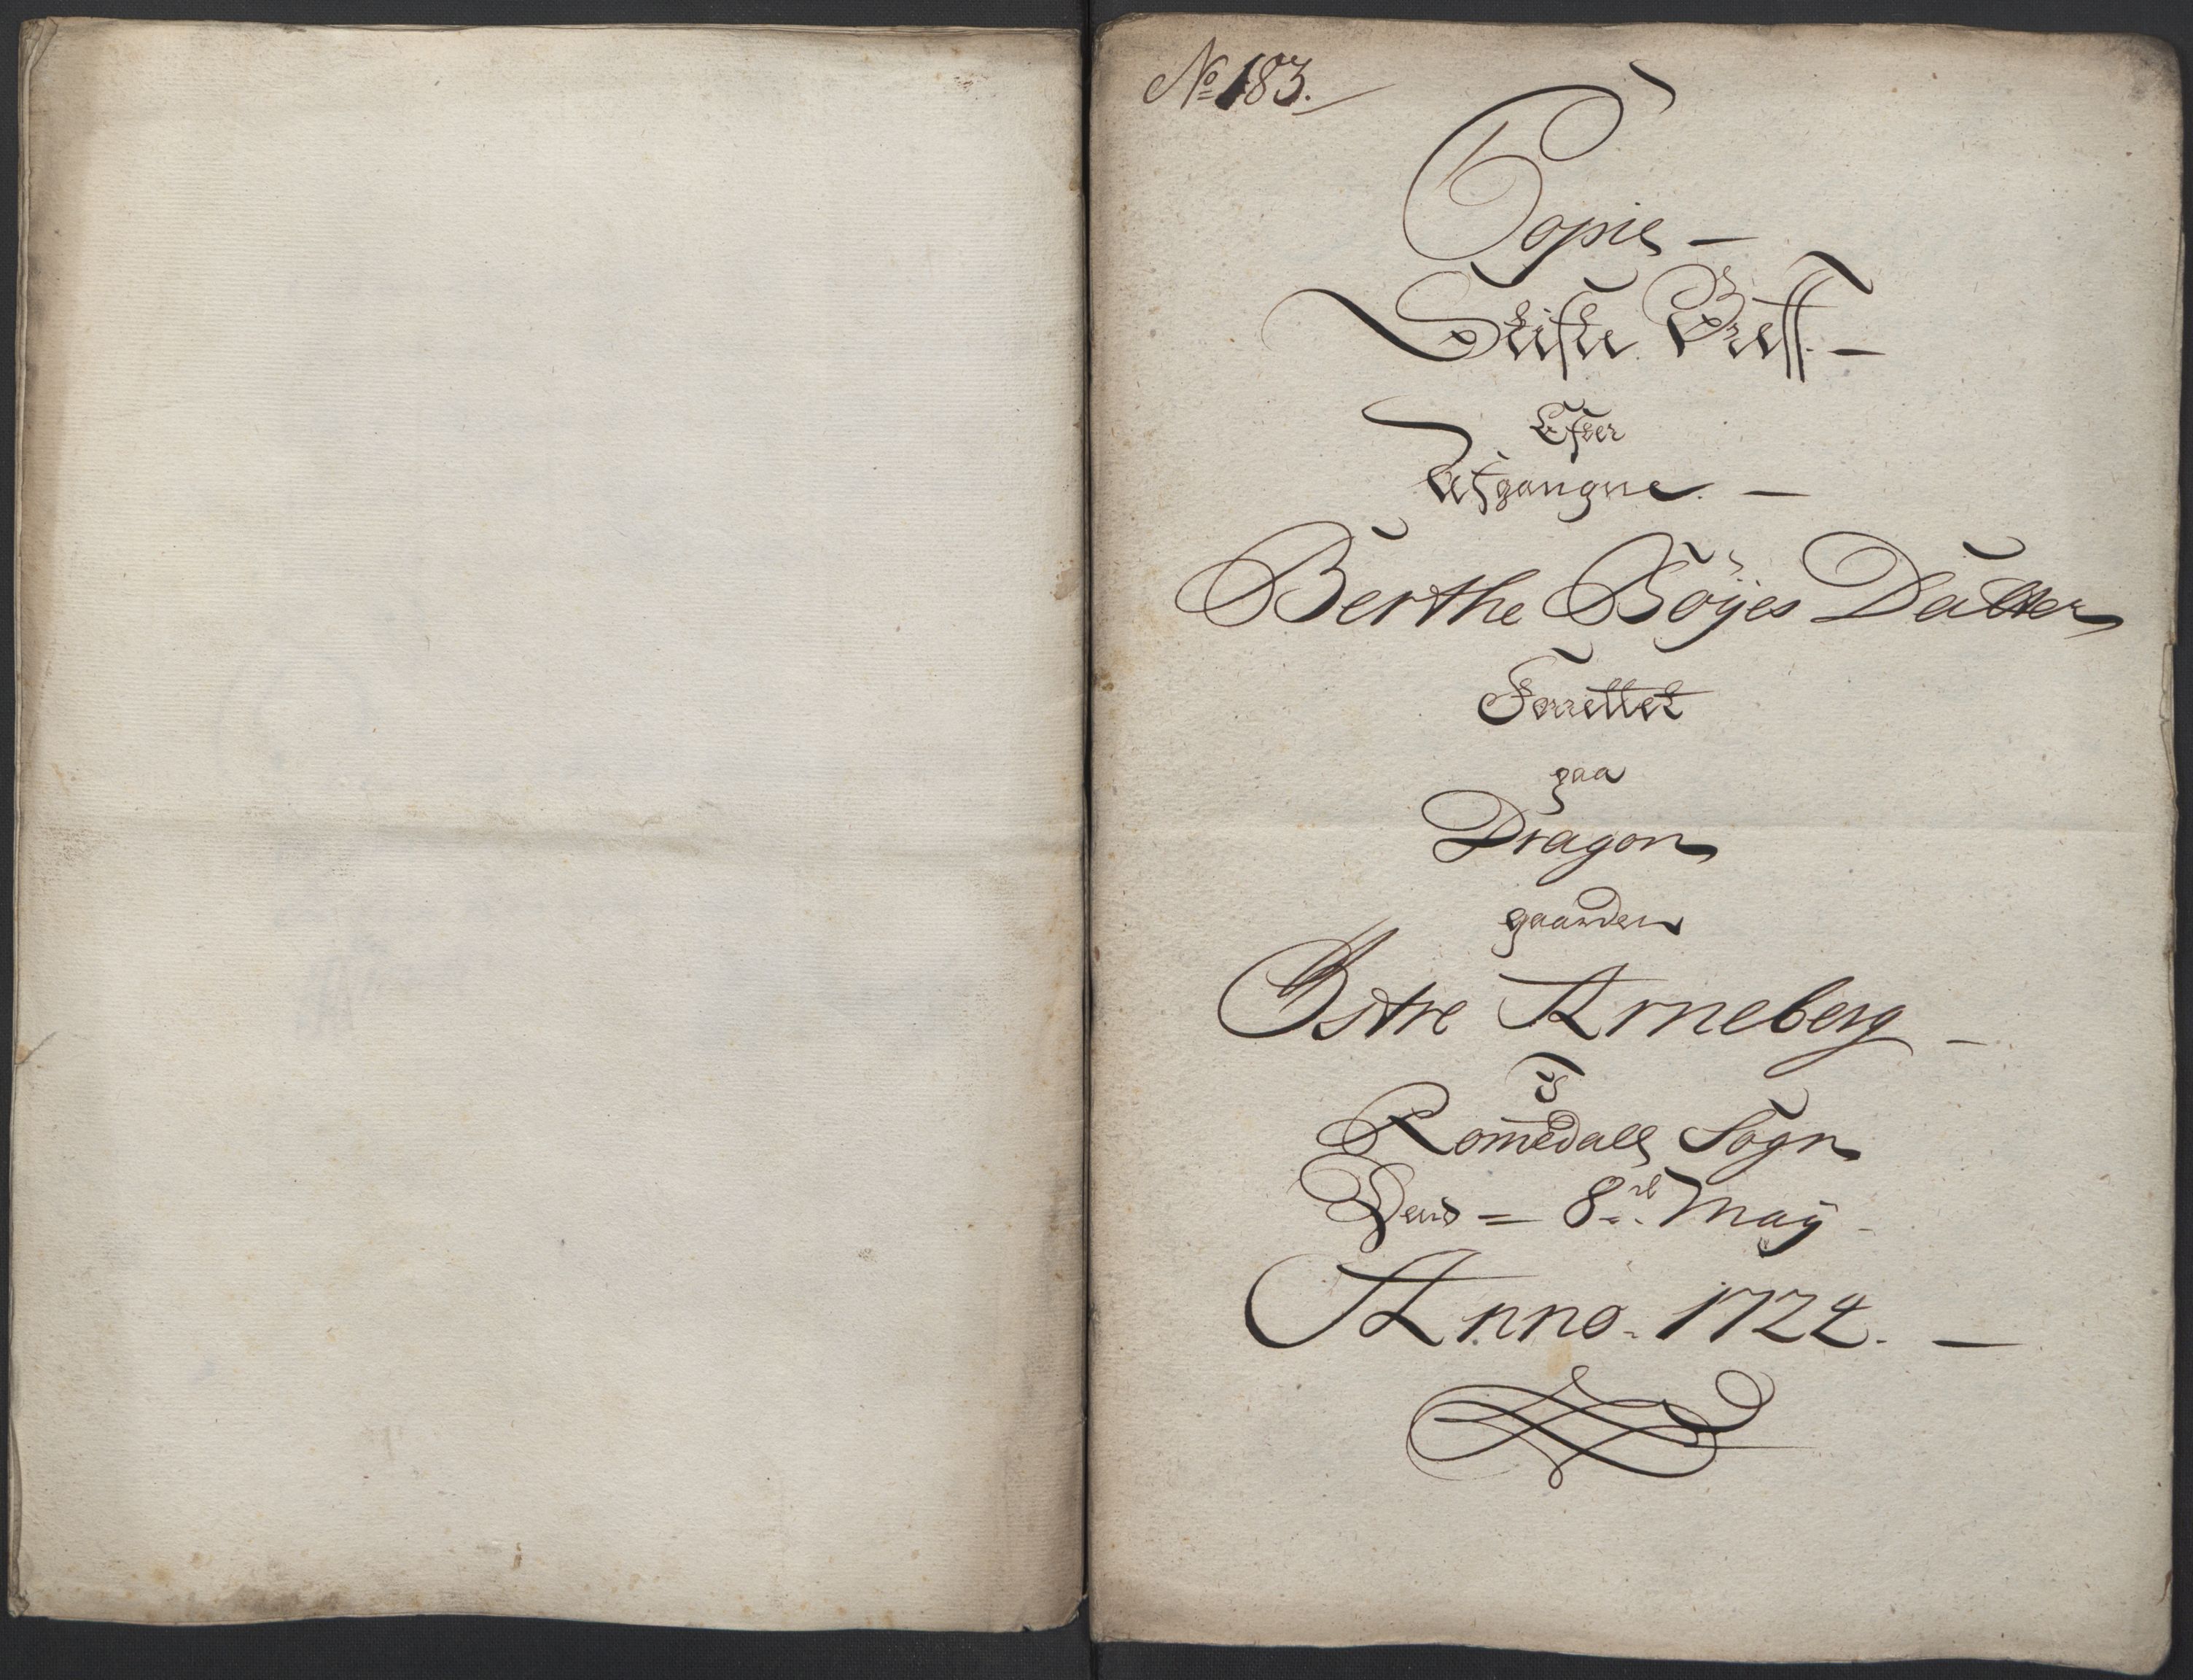 No 183.
Copie —
Skifte Breff. —
Efter
Afgangne. —
Berthe Böÿes Datter
Forrettet
paa
Dragon
gaarden
Östre Arneberg —
I
Romedals Sogn
Dend = 8de May
Anno. 1724. —